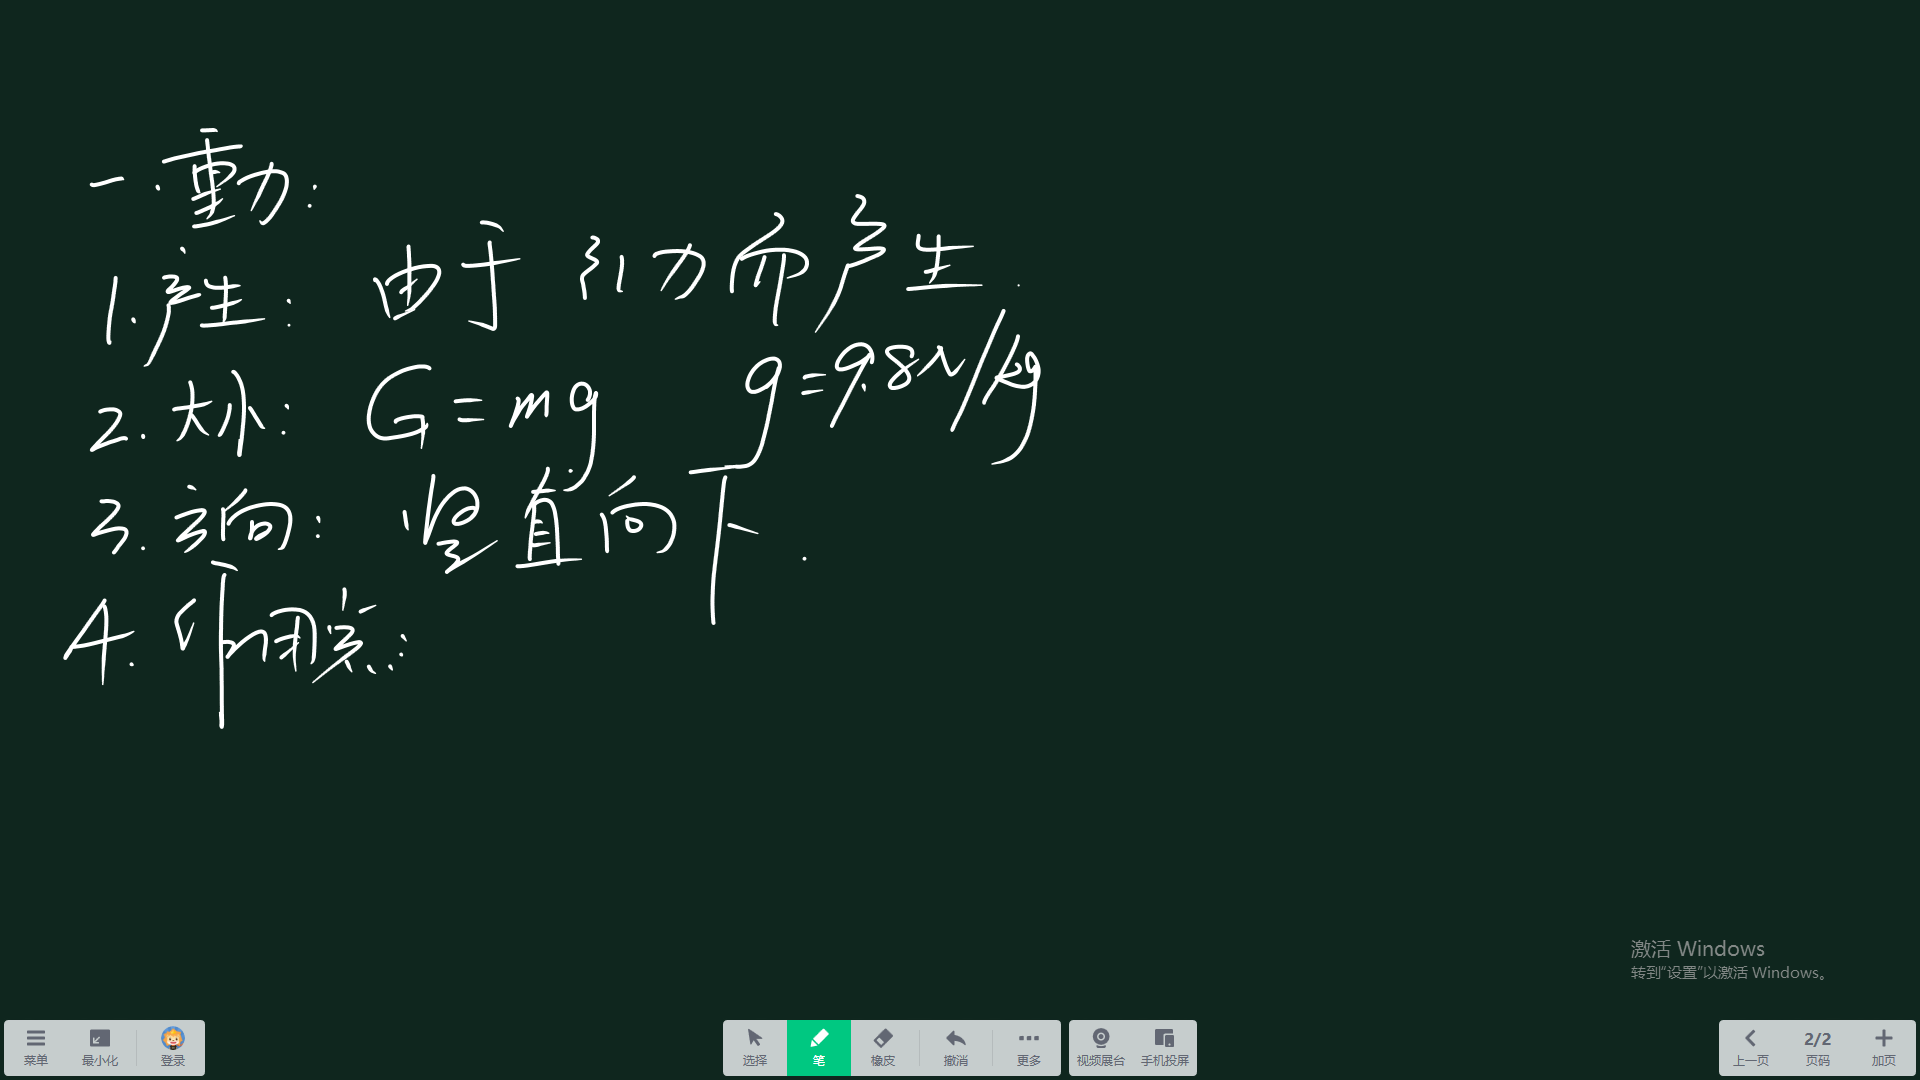 一.重力:
1.产生: 由于引力而产生.
2.大小: G=mg g=9.8N/kg
3.方向: 竖直向下.
4.作用点:
激活 Windows
转到“设置”以激活 Windows。
菜单 最小化 登录 选择 笔 橡皮 撤消 更多 视频展台 手机投屏 上一页 2/2 页码 加页